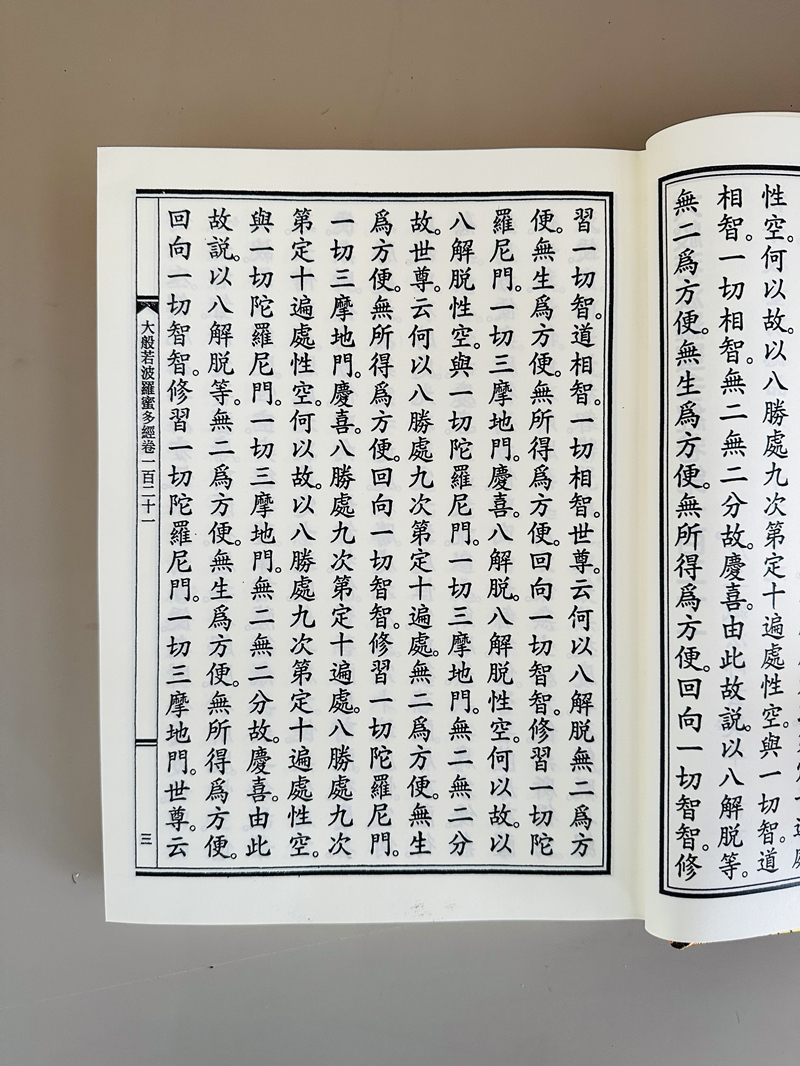 性空。何以故。以八勝處九次第定十遍處性空。與一切智。道
相智。一切相智。無二無二分故。慶喜。由此故説。以八解脱等。
無二爲方便。無生爲方便。無所得爲方便。回向一切智智。修
習一切智。道相智。一切相智。世尊。云何以八解脱無二爲方
便。無生爲方便。無所得爲方便。回向一切智智。修習一切陀
羅尼門。一切三摩地門。慶喜。八解脱。八解脱性空。何以故。以
八解脱性空。與一切陀羅尼門。一切三摩地門。無二無二分
故。世尊。云何以八勝處九次第定十遍處。無二爲方便。無生
爲方便。無所得爲方便。回向一切智智。修習一切陀羅尼門。
一切三摩地門。慶喜。八勝處九次第定十遍處。八勝處九次
第定十遍處性空。何以故。以八勝處九次第定十遍處性空。
與一切陀羅尼門。一切三摩地門。無二無二分故。慶喜。由此
故説。以八解脱等。無二爲方便。無生爲方便。無所得爲方便。
回向一切智智。修習一切陀羅尼門。一切三摩地門。世尊。云
大般若波羅蜜多經卷一百二十一
三